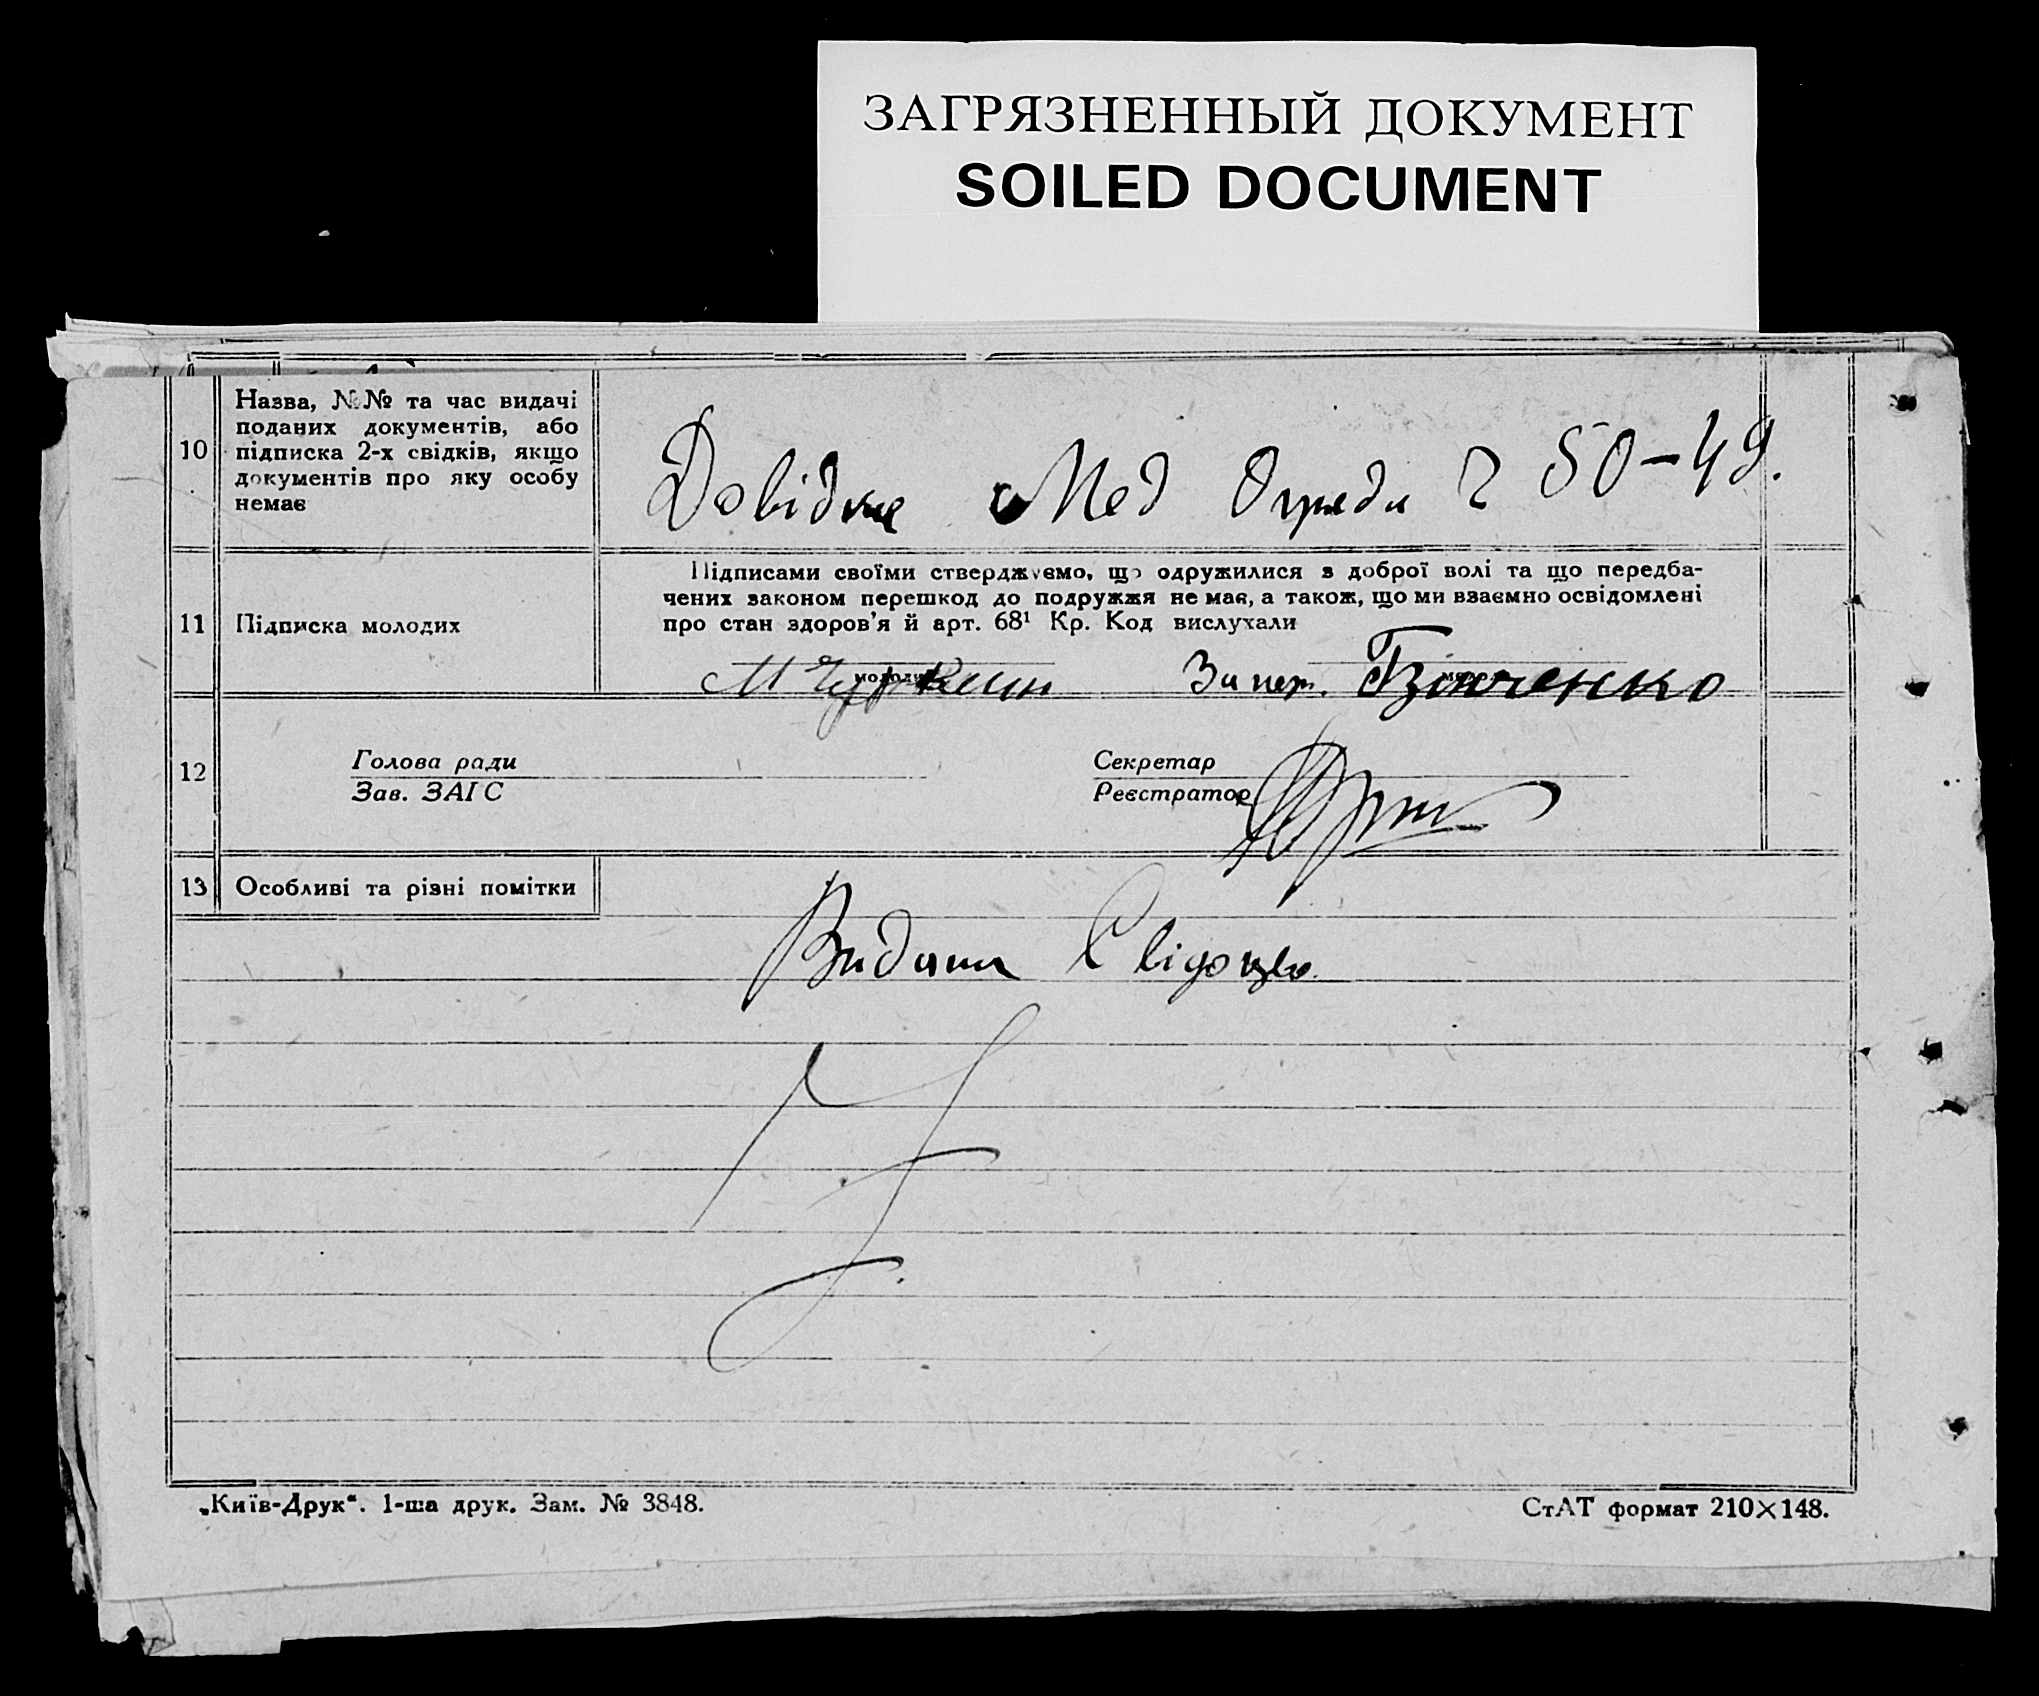 ЗАГРЯЗНЕННЫЙ ДОКУМЕНТ
SOILED DOCUMENT
10
Назва, №№ та час видачі
поданих документів, або
підписка 2-х свідків, якщо
документів про яку особу
немає
Довідка Мед 50-49.
11
Підписка молодих
Підписами своїми стверджуємо, що одружилися з доброї волі та що передба-
чених законом перешкод до подружжя не має, а також, що ми взаємно освідомлені
про стан здоров'я й арт. 68¹ Кр. Код вислухали
12
Голова ради
Зав. ЗАГС
Секретар
Реєстратор
13
Особливі та різні помітки
Видана
„Київ-Друк“. 1-ша друк. Зам. № 3848.
СтАТ формат 210×148.